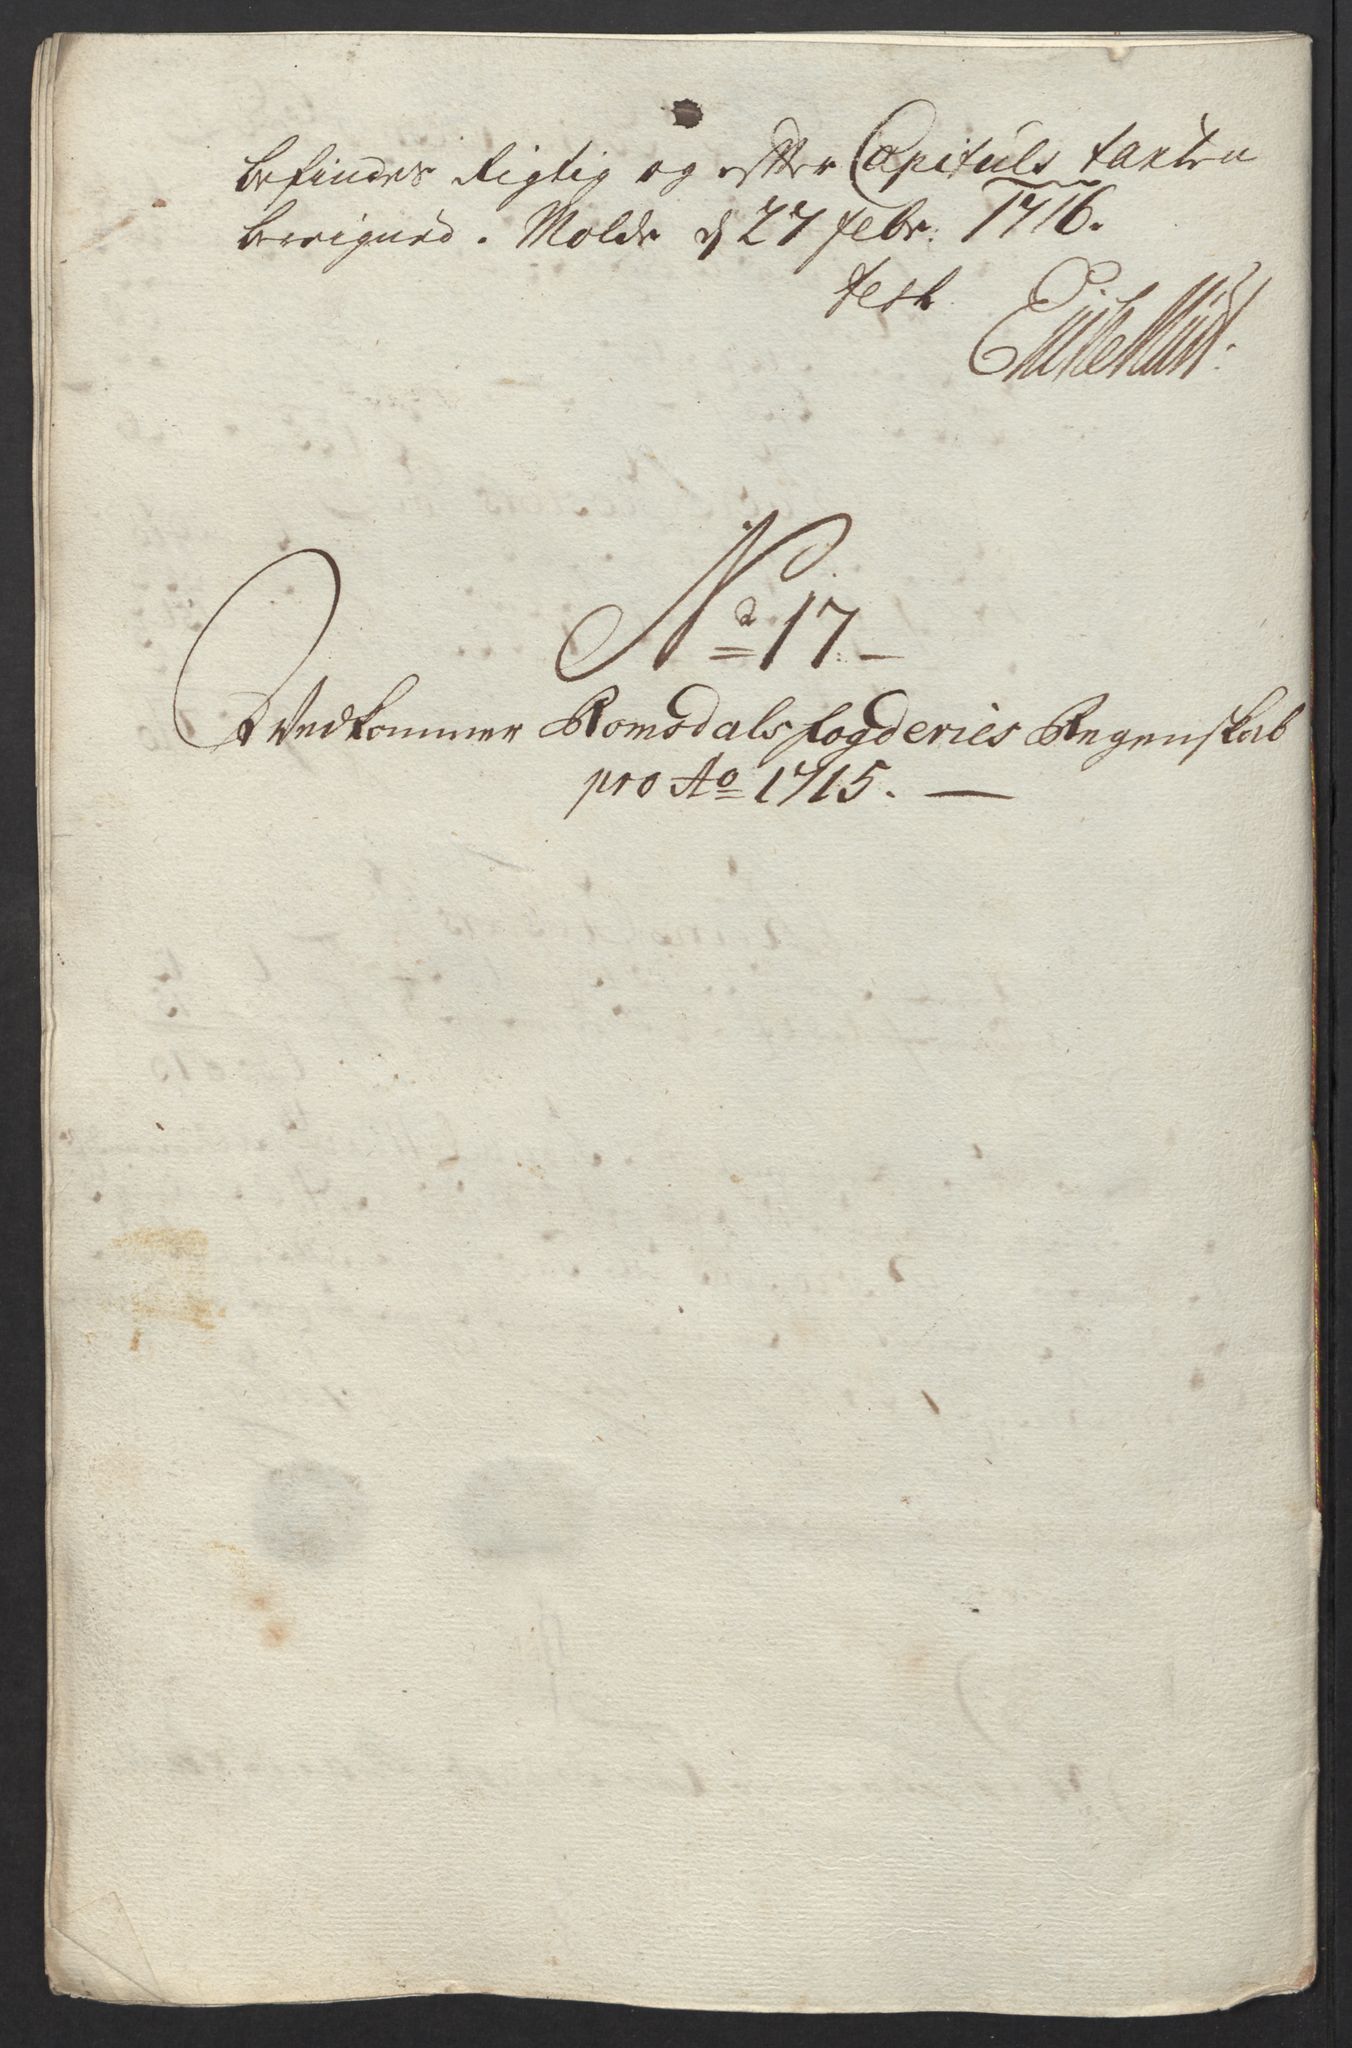 befindes Rigtig og efter Capituls taxten
bereigned. Molde d 27 febr: 1716.
test
No 17
Vedkommer Romsdals fogderies Regenskab
pro Ao 1715.